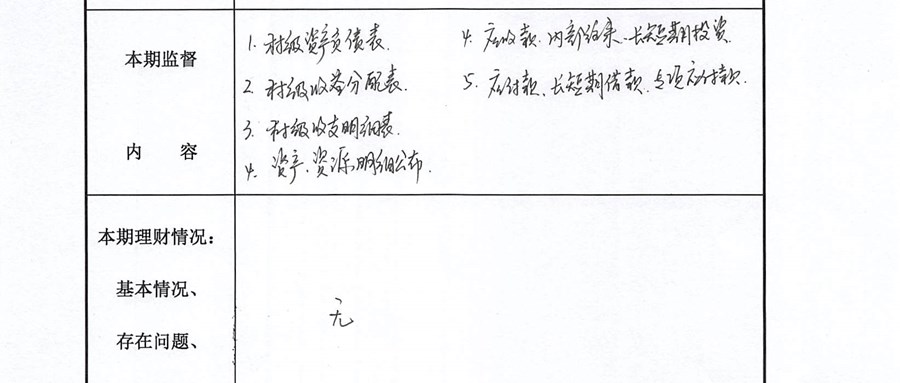 本期监督
内 容
1. 村级资产负债表.
2. 村级收益分配表.
3. 村级收支明细表.
4. 资产、资源明细公布.
4. 应收款、内部往来、长短期投资.
5. 应付款、长短期借款、专项应付款.
本期理财情况：
基本情况、
存在问题、
无